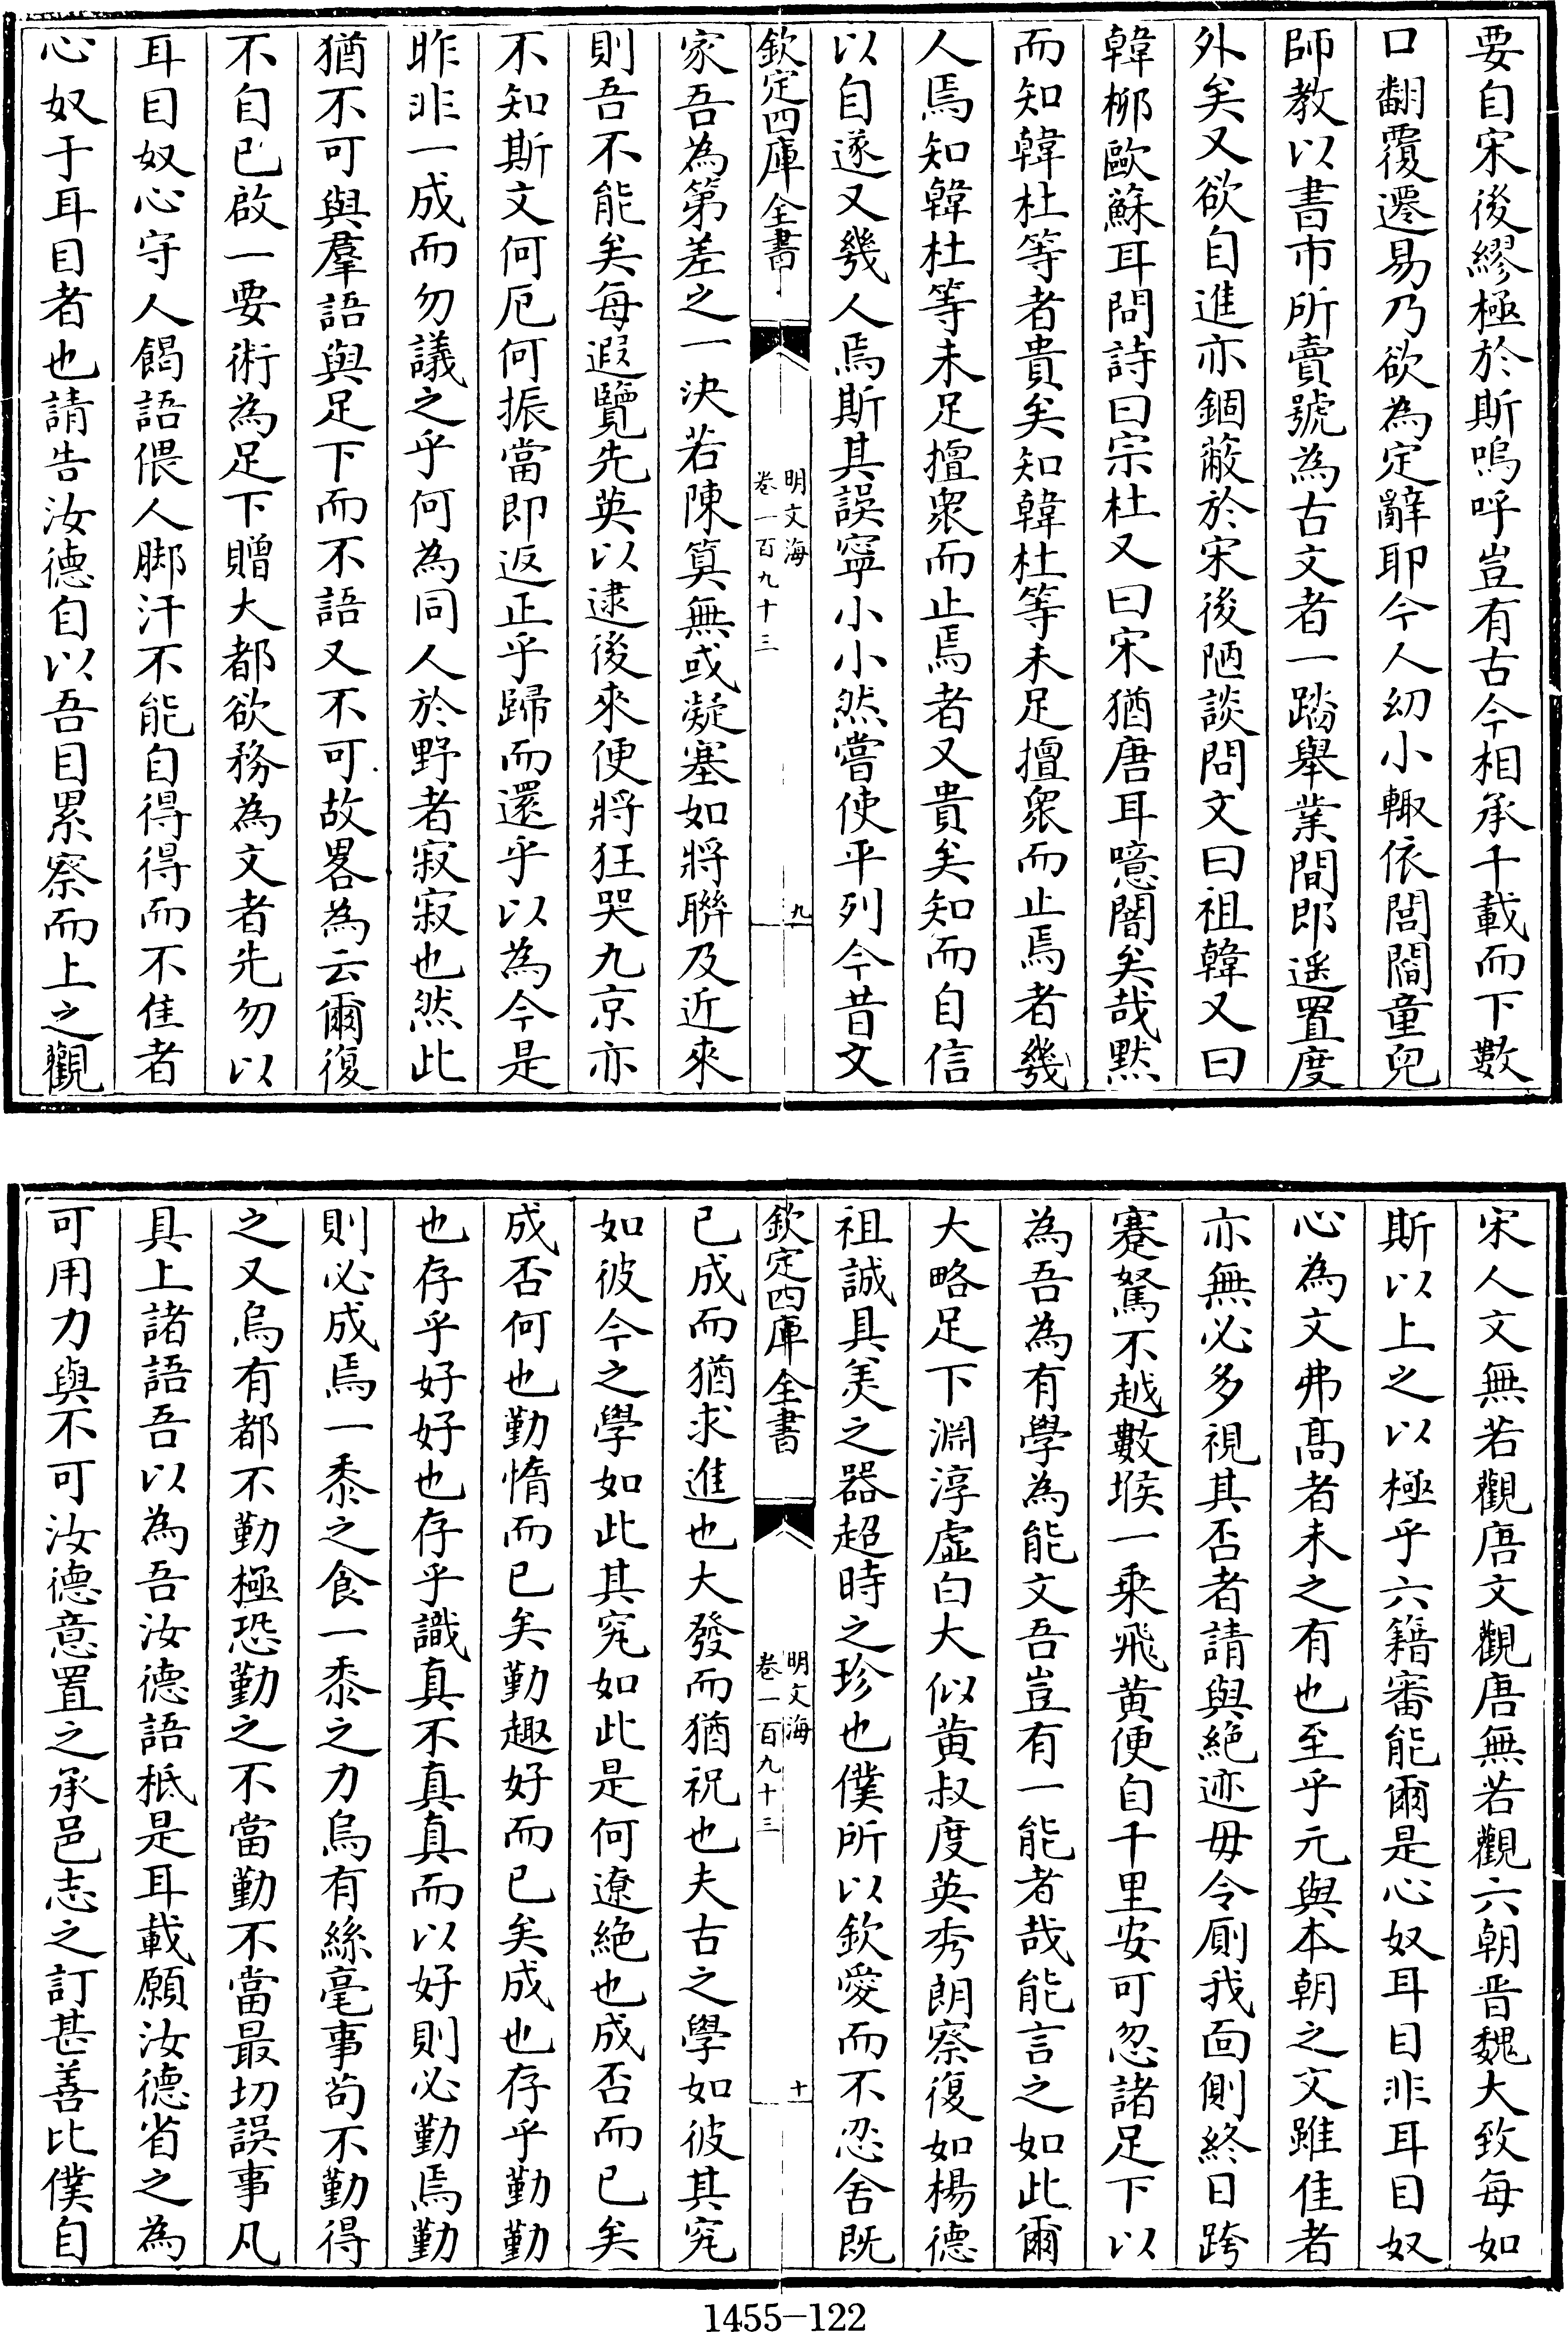 要自宋後繆極於斯嗚呼豈有古今相承千載而下數
口翻覆遷易乃欲為定辭耶今人幼小輙依閭閻童兒
師教以書市所賣號為古文者一踏舉業間即遥置度
外矣又欲自進亦錮蔽於宋後陋談問文曰祖韓又曰
韓栁歐蘇耳問詩曰宗杜又曰宋猶唐耳噫闇矣哉黙
而知韓杜等者貴矣知韓杜等未足擅衆而止焉者幾
人焉知韓杜等未足擅衆而止焉者又貴矣知而自信
以自遂又幾人焉斯其誤寜小小然嘗使平列今昔文
欽定四庫全書
明文海
卷一百九十三
九
家吾為第差之一決若陳筭無或凝塞如將聨及近來
則吾不能矣每遐覽先英以逮後來便將狂哭九京亦
不知斯文何厄何振當即返正乎歸而還乎以為今是
昨非一成而勿議之乎何為同人於野者寂寂也然此
猶不可與羣語與足下而不語又不可故畧為云爾復
不自已啟一要術為足下贈大都欲務為文者先勿以
耳目奴心守人餲語偎人脚汗不能自得得而不佳者
心奴于耳目者也請告汝德自以吾目累察而上之觀
宋人文無若觀唐文觀唐無若觀六朝晋魏大致每如
斯以上之以極乎六籍審能爾是心奴耳目非耳目奴
心為文弗髙者未之有也至乎元與本朝之文雖佳者
亦無必多視其否者請與絶迹毋令厠我面側終日跨
蹇駑不越數堠一乗飛黄便自千里安可忽諸足下以
為吾為有學為能文吾豈有一能者哉能言之如此爾
大略足下淵淳虛白大似黄叔度英秀朗察復如楊德
祖誠具美之器超時之珍也僕所以欽愛而不忍舍既
欽定四庫全書
明文海
卷一百九十三
十
已成而猶求進也大發而猶祝也夫古之學如彼其究
如彼今之學如此其究如此是何遼絶也成否而已矣
成否何也勤惰而已矣勤趣好而已矣成也存乎勤勤
也存乎好好也存乎識真不真真而以好則必勤焉勤
則必成焉一黍之食一黍之力烏有絲毫事茍不勤得
之又烏有都不勤極恐勤之不當勤不當最切誤事凡
具上諸語吾以為吾汝德語柢是耳載願汝德省之為
可用力與不可汝德意置之承邑志之訂甚善比僕自
1455-122